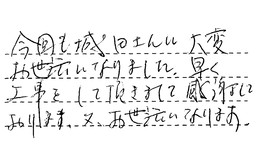 今回も城口さんに大変
お世話になりました。早く
工事をして頂きまして感謝して
おります。又、お世話になります。